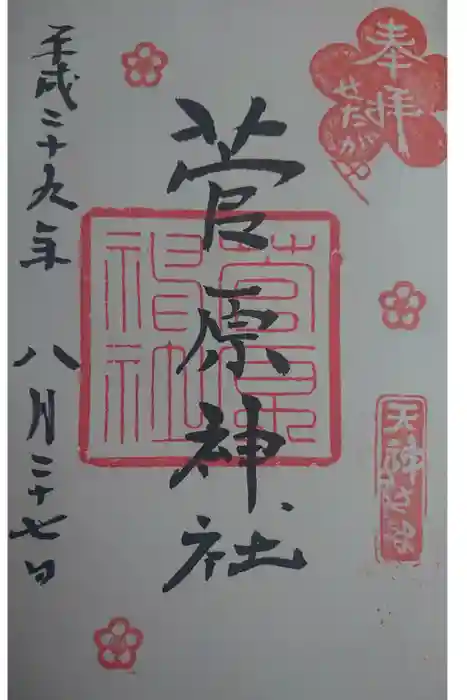 奉拝
せたがや
天神
菅原神社
菅原神社
平成二十九年 八月二十七日